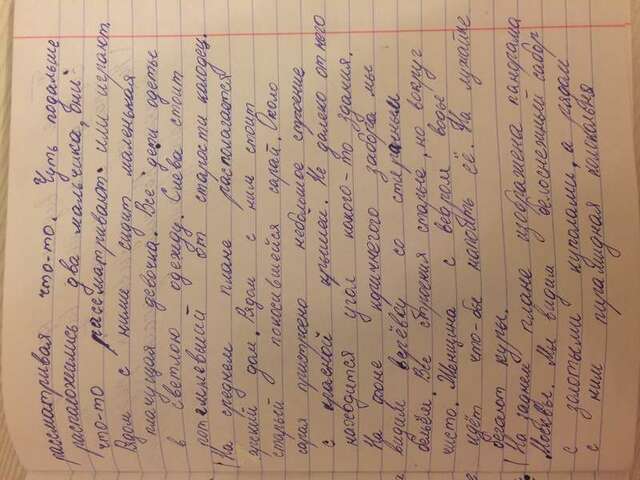 рассматривая что-то. Чуть подальше
расположились два мальчика, они
что-то рассматривают или играют
Рядом с ними сидит маленькая
плачущая девочка. Все дети одеты
в светлою одежду. Слева стоит
потемневший от старости колодец.
На среднем плане располагается
дом. Рядом с ним стоит
старый покосившейся сарай. Около
сарая пристроено небольшое строение
с красной крышей. Не далеко от него
находится угол какого-то здания.
На фоне забора мы
видим верёвку со стираным
бельём. Все строения старые, но вокруг
чисто. Женщина с ведром воды
идёт что-бы напоить её. На лужайке
бегают куры.
На заднем плане изображена панорама
Москвы. Мы видим белоснежный сабор
с золотыми куполами, а рядом
с ним пирамидная колокольня